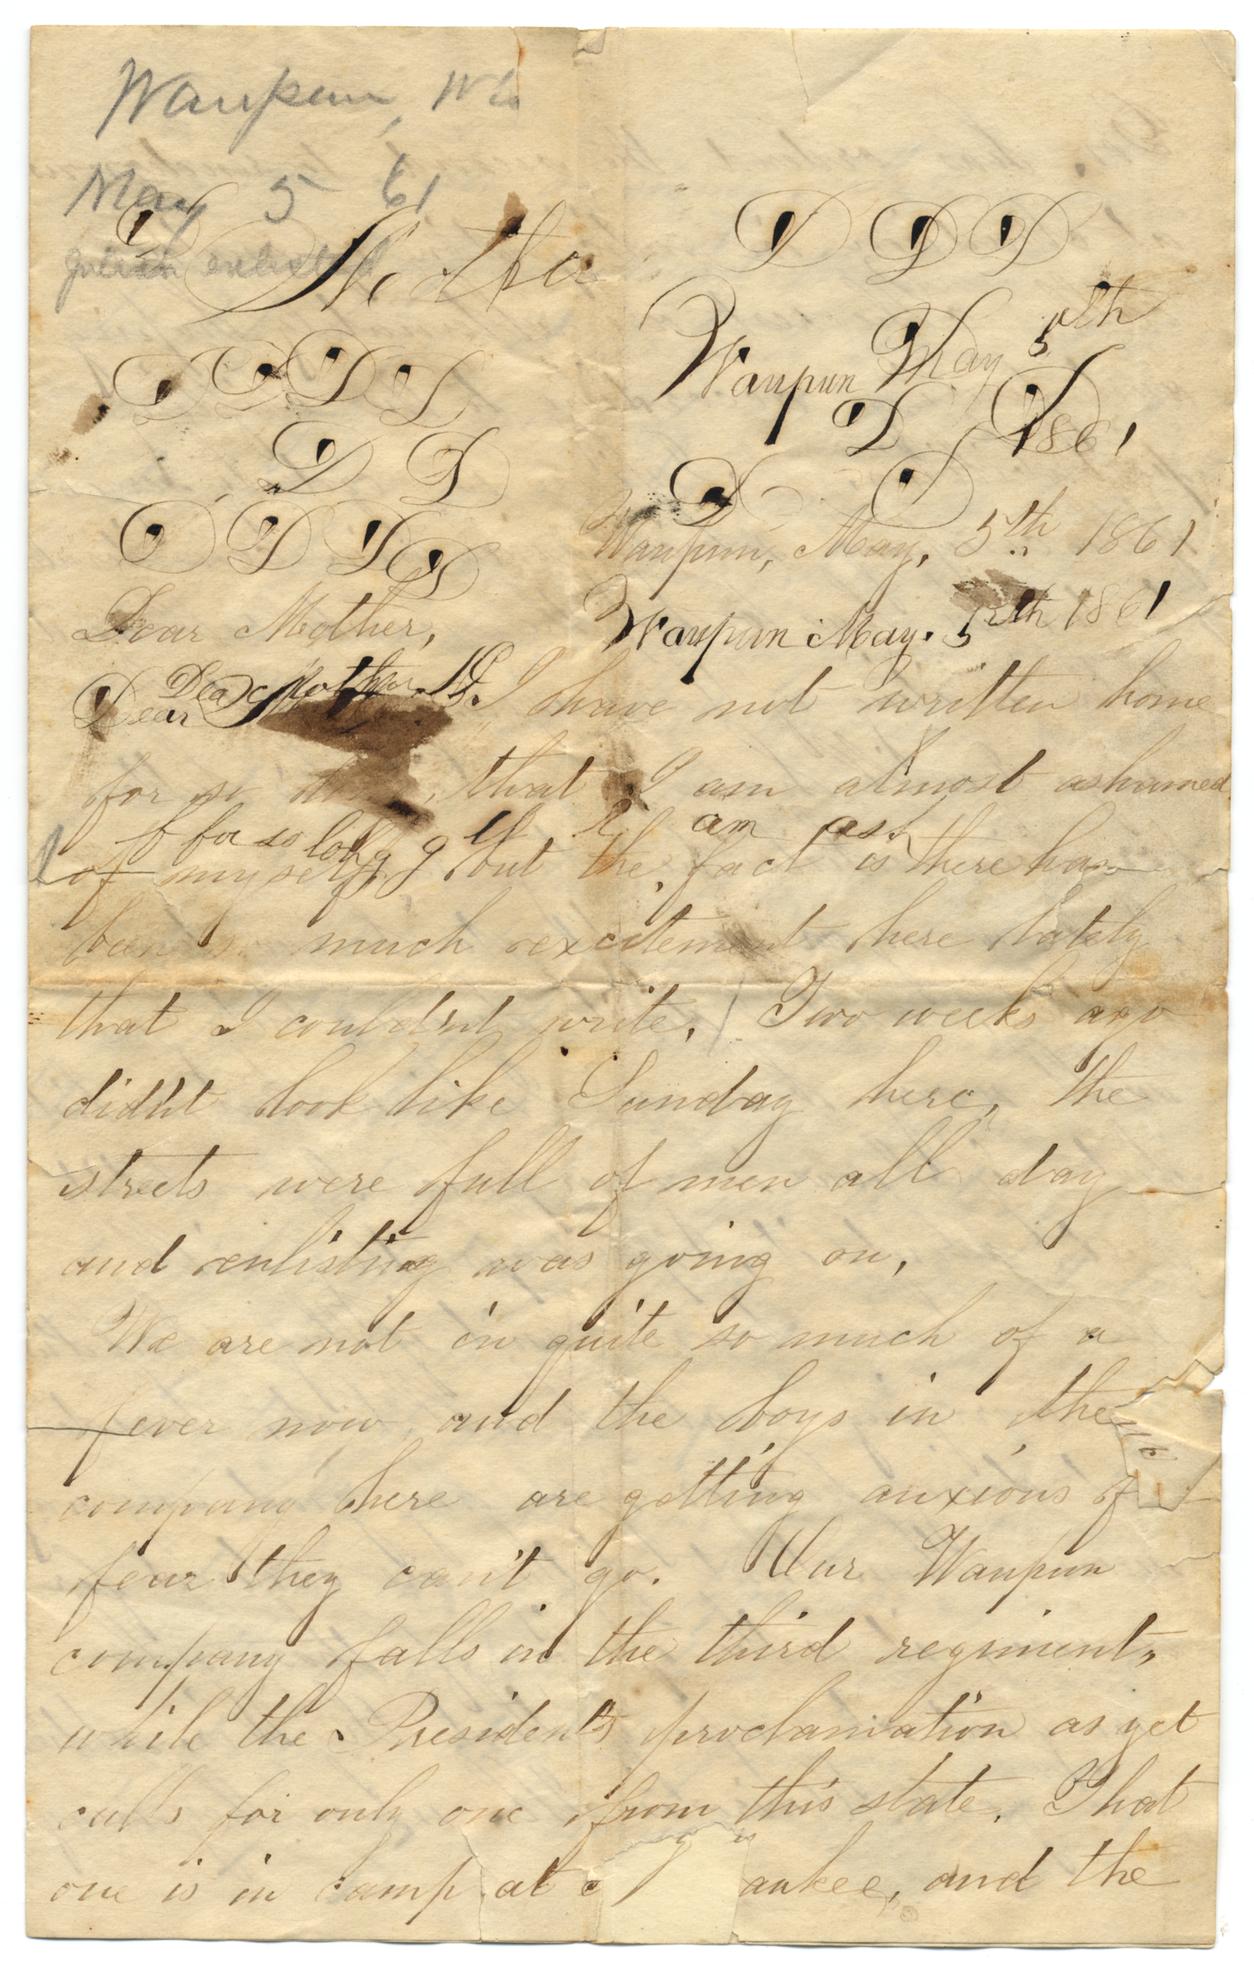 Waupun, Wis
May 5 61
Julian enlisted
Mother
D D D
Waupun May 5th
1861
D D D D
D D
D D D D
D D
D D
Waupun, May, 5th 1861
Waupun May. 5th 1861
Dear Mother,
Dear Mother
Dear
I have not written home
for so long, that I am almost ashamed
for so long g g th I am ash
of myself, but the fact is there has
been so much excitement here lately
that I couldn't write. Two weeks ago
didn't look like Sunday here, the
streets were full of men all day
and enlisting was going on,
We are not in quite so much of a
fever now and the boys in the
company here are getting anxious for
fear they can't go. Our Waupun
company falls in the third regiment,
while the President's proclamation as yet
calls for only one from this state. That
one is in camp at aukee, and the